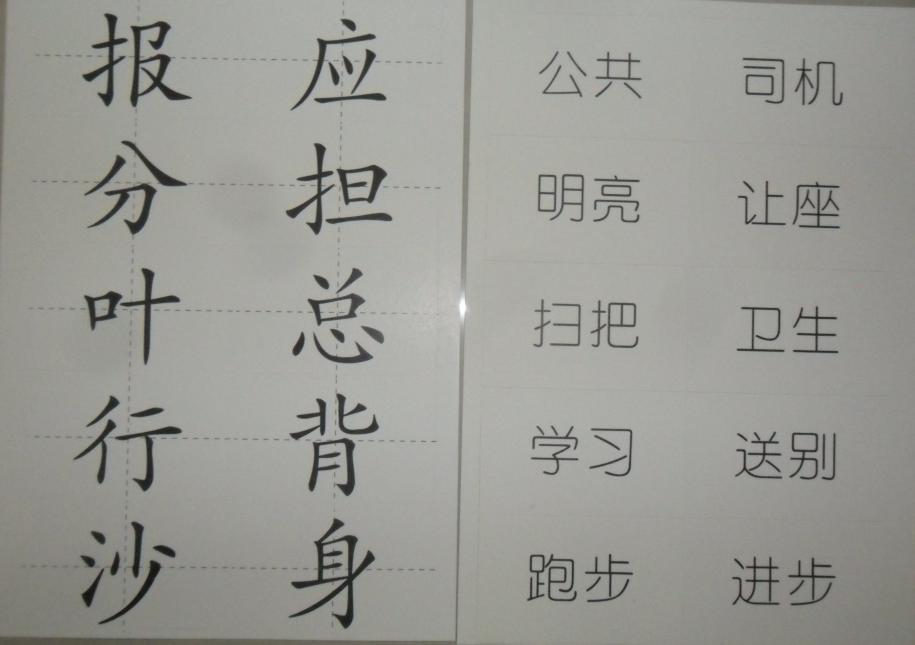 报 应
分 担
叶 总
行 背
沙 身
公共 司机
明亮 让座
扫把 卫生
学习 送别
跑步 进步